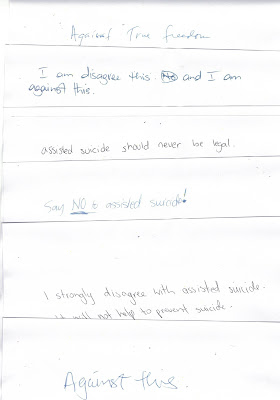 Against True freedom
I am disagree this. and I am
against this.
assisted suicide should never be legal.
Say NO to assisted suicide!
I strongly disagree with assisted suicide.
it will not help to prevent suicide.
Against this.